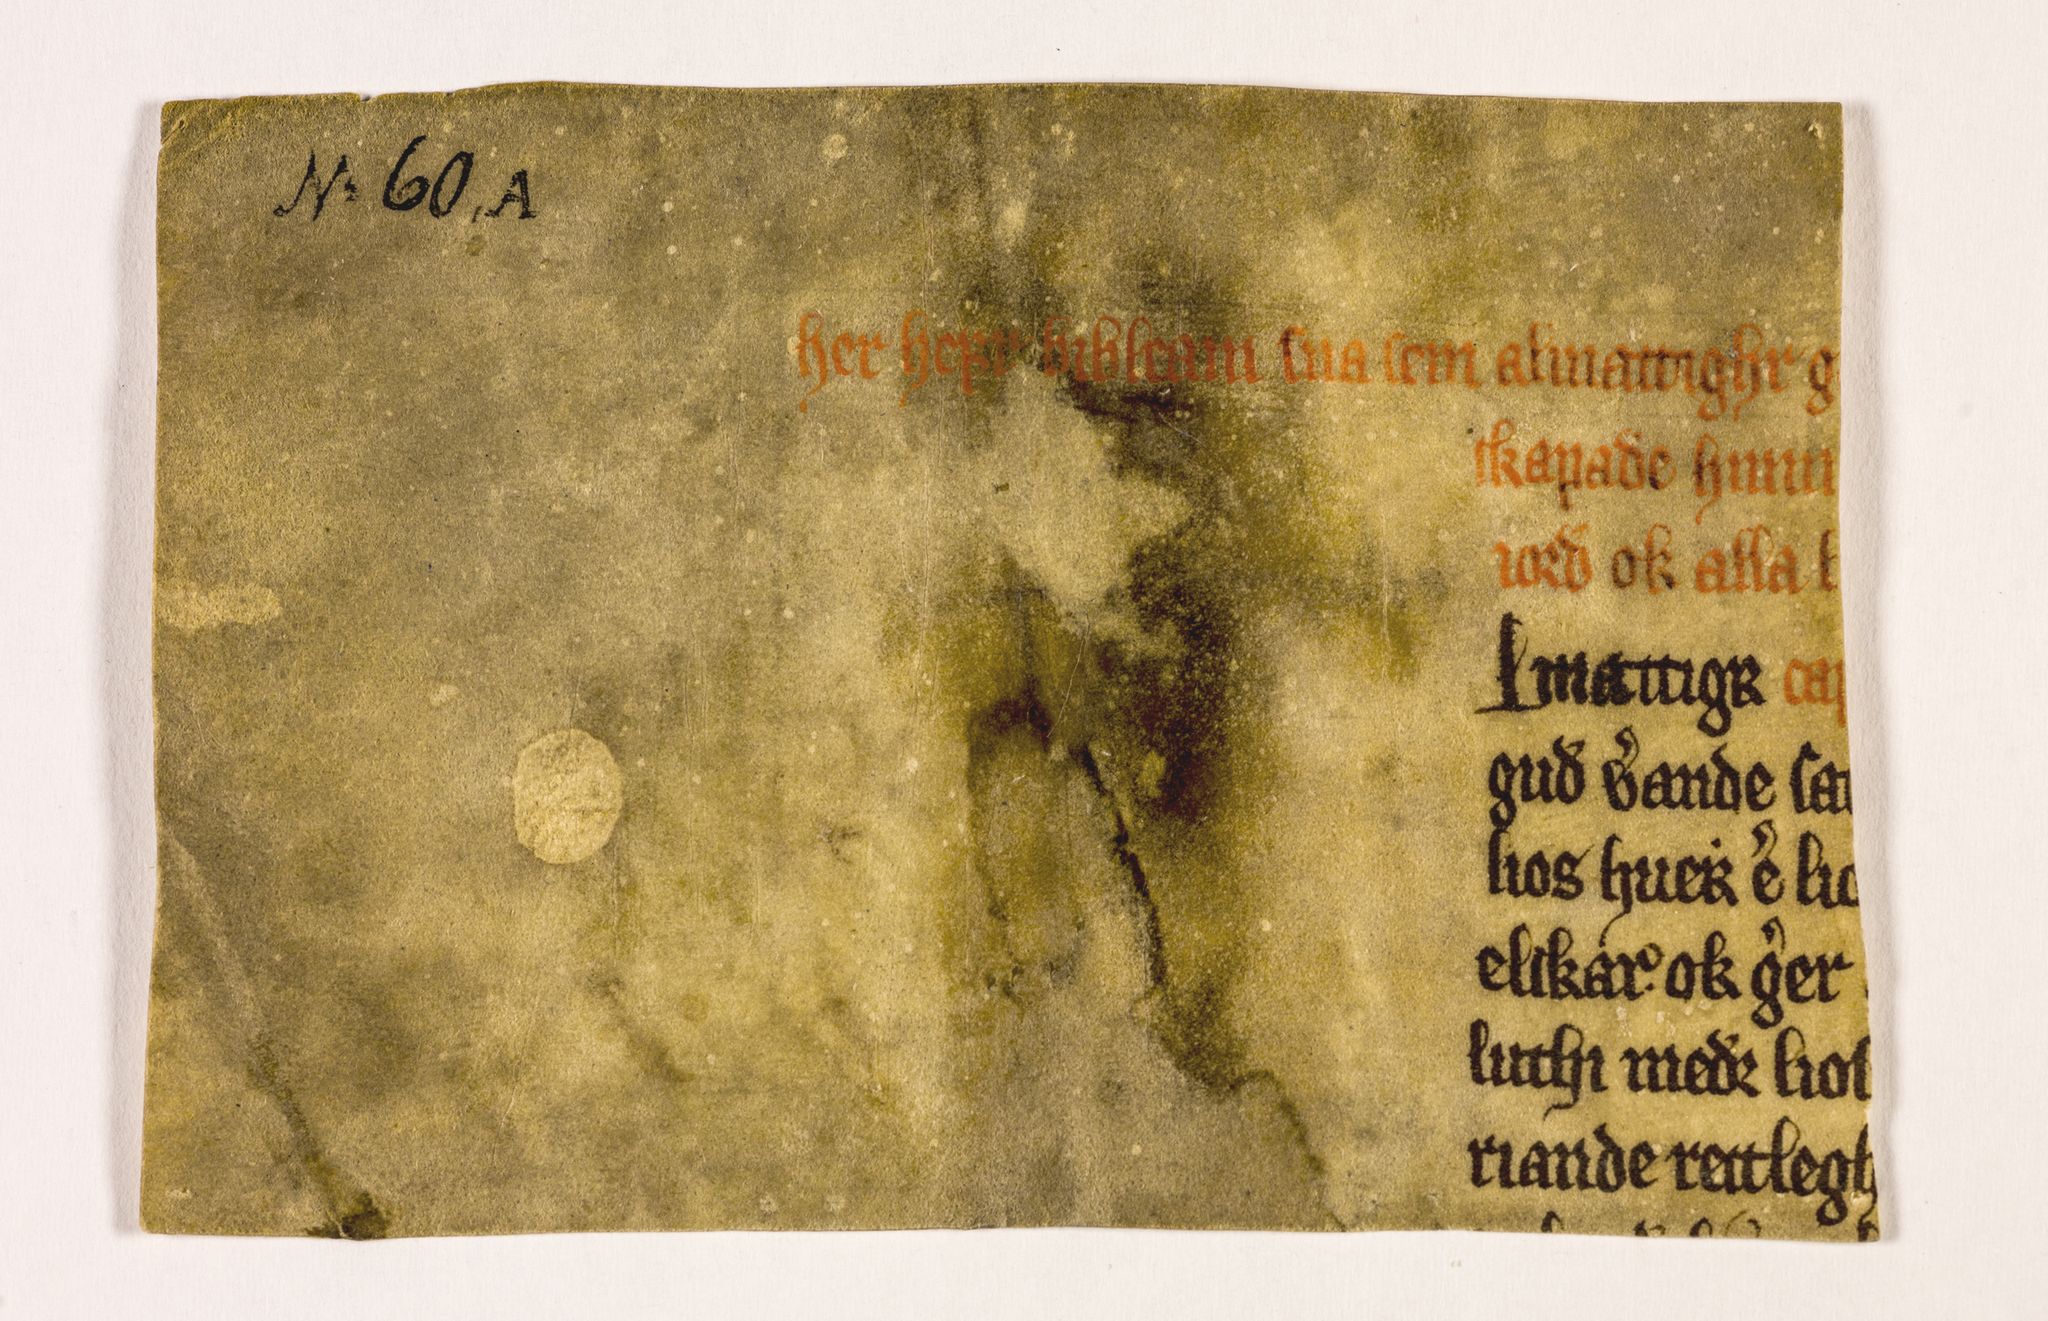 N 60, A
her hefr bibleam sua sem almattighr g
skapade himi
iord ok alla
lmattigr cap
gud v͛ande sat
lios huerr e͛ lio
elskar ok g͛er
luthi medr lios
riande rettlegh